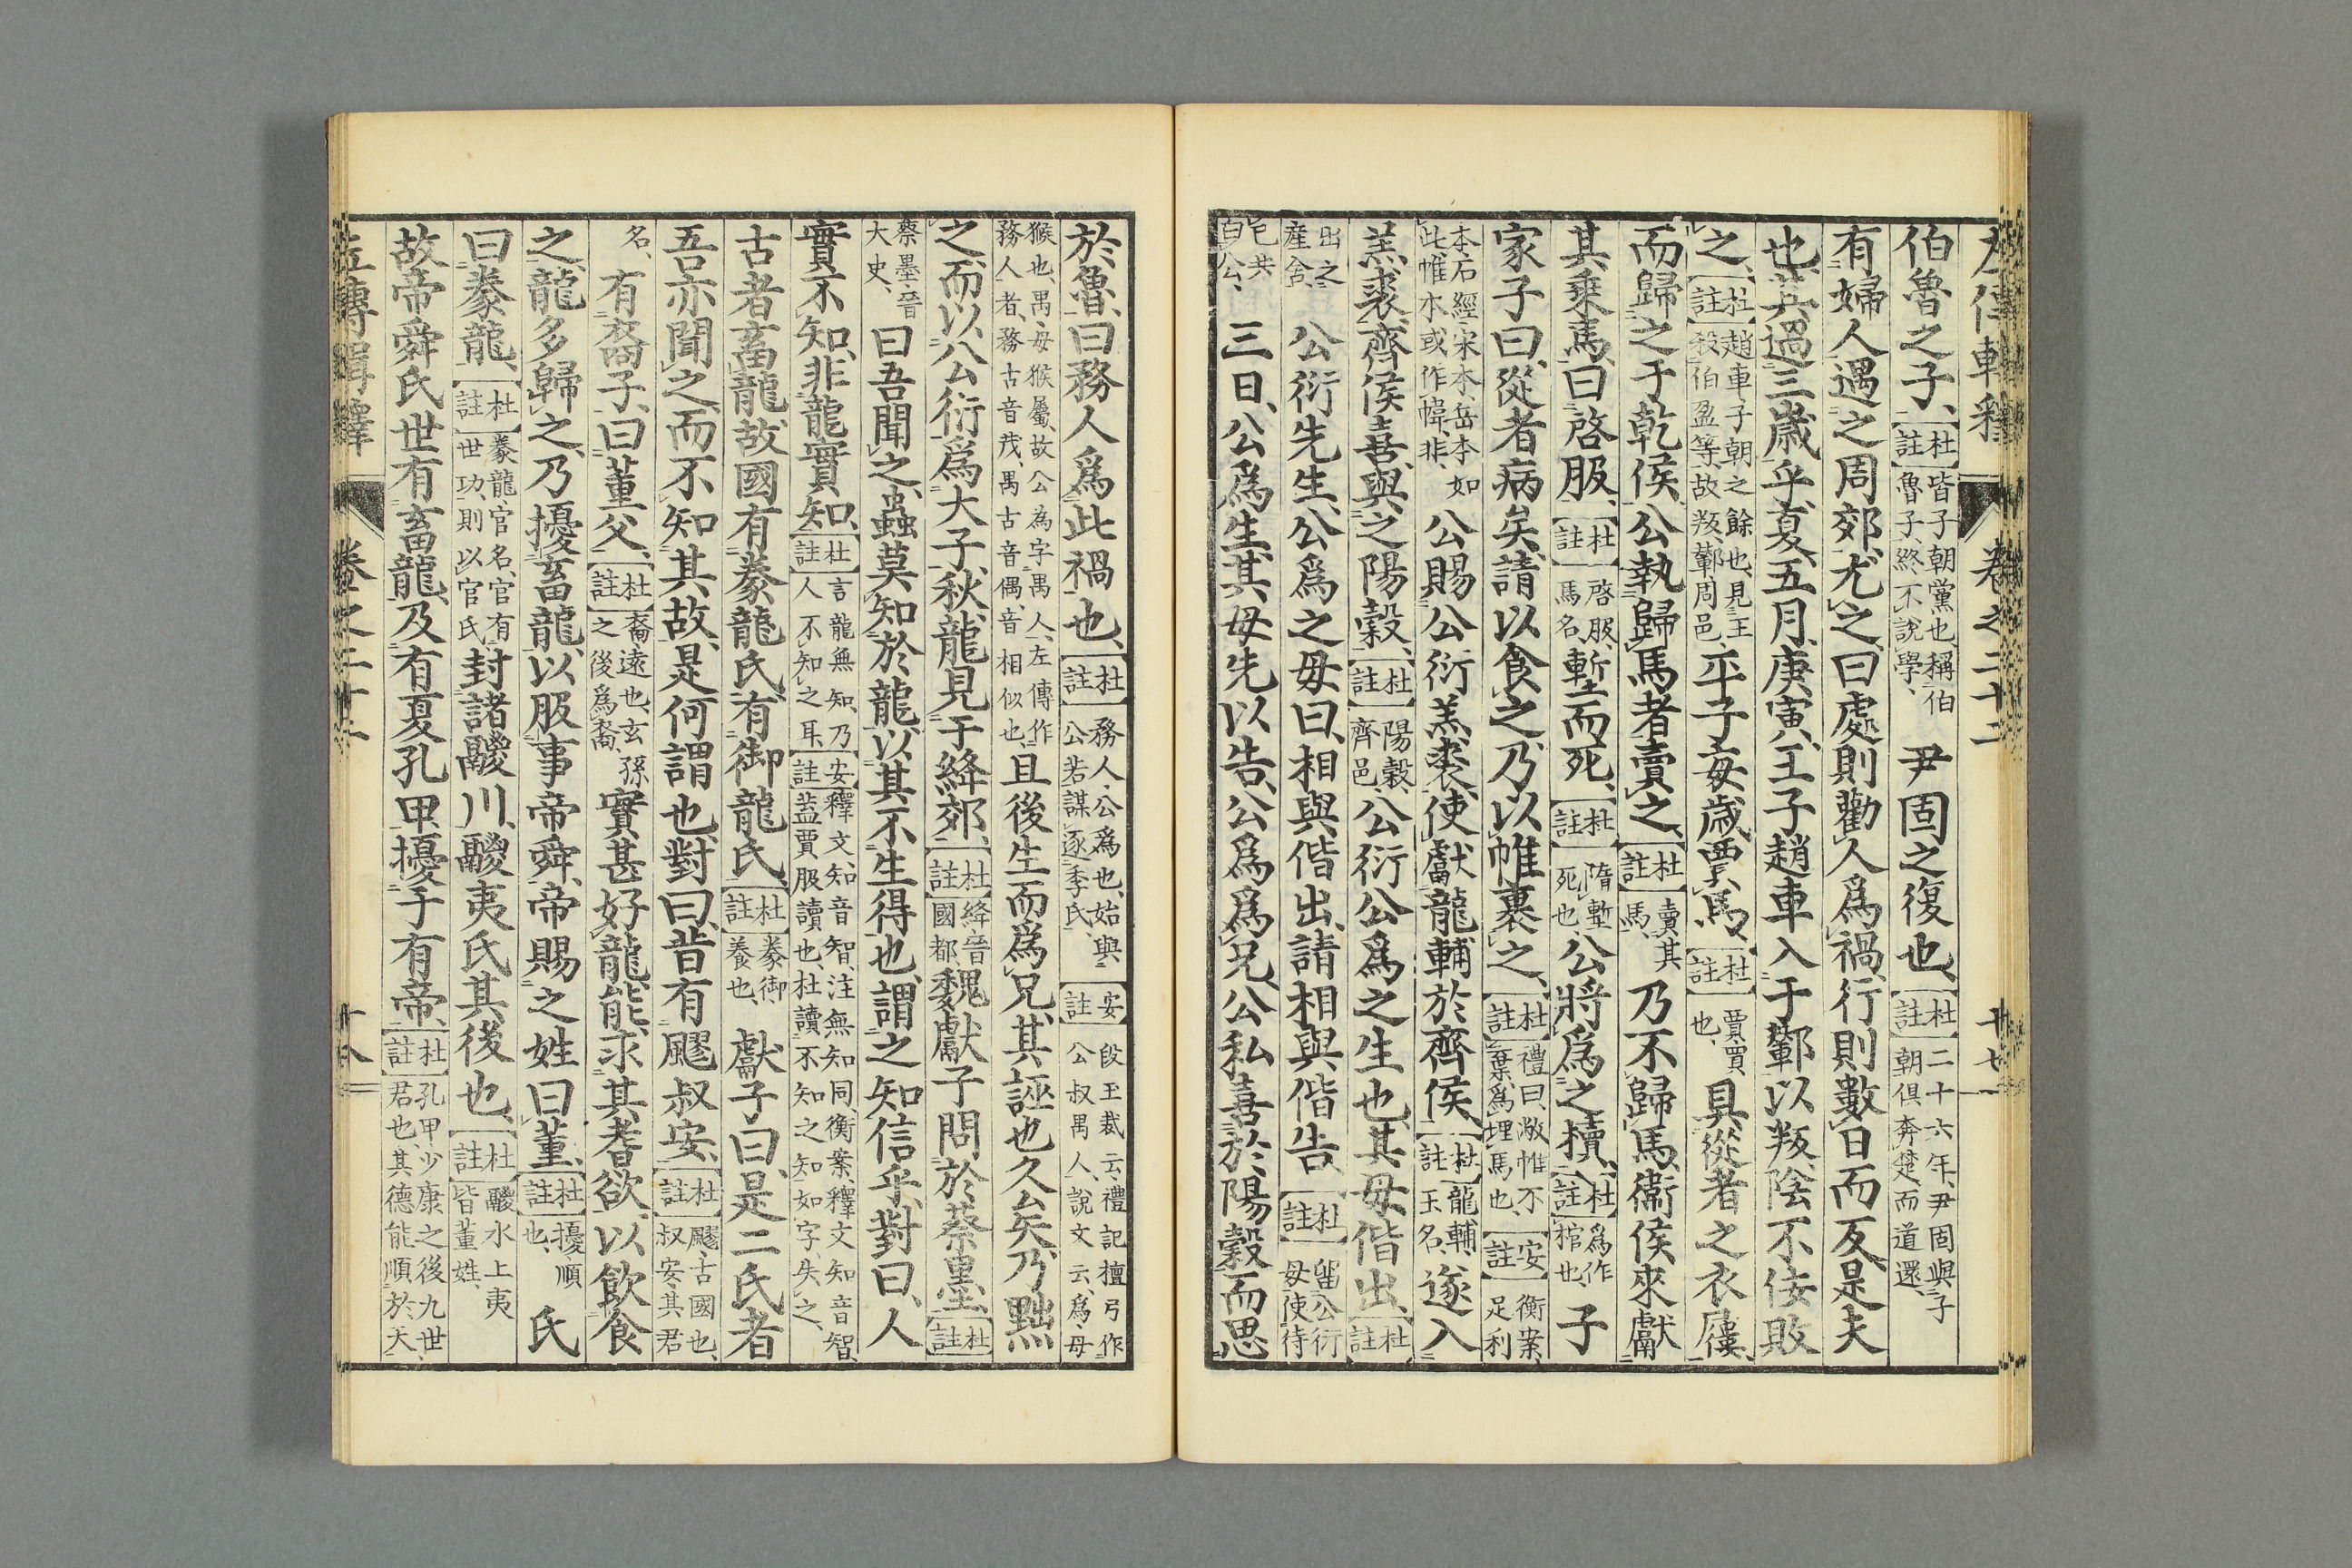 左傳輯釋 卷之二十二 十七
伯魯之子、【杜註】皆子朝黨也、稱伯魯子、終不說學、尹固之復也、【杜註】二十六年、尹固與子朝俱奔楚、而道還、
有婦人遇之周郊、尤之、曰處則勸人爲禍、行則數日而反、是夫
也、其過三歲乎、夏、五月、庚寅、王子趙車入于鄻以叛、陰不佞敗
之、【杜註】趙車、子朝之餘也、見王殺伯盈等、故叛、鄻、周邑、平子每歲賈馬、【杜註】賈、買也、具從者之衣屨、
而歸之于乾侯、公執歸馬者賣之、【杜註】賣其馬、乃不歸馬、衞侯來獻
其乘馬、曰啓服、【杜註】啓服、馬名、塹而死、【杜註】隋塹死也、公將爲之櫝、【杜註】爲作棺也、子
家子曰、從者病矣、請以食之、乃以帷裹之、【杜註】禮曰、敝帷不棄、爲埋馬也、【安註】衡案、足利
本、石經、宋本、岳本、如此、帷本或作幃、非、公賜公衍羔裘、使獻龍輔於齊侯、【杜註】龍輔、玉名、遂入
羔裘、齊侯喜、與之陽穀、【杜註】陽穀、齊邑、公衍公爲之生也、其母偕出、【杜註】
出之產舍、公衍先生、公爲之母曰、相與偕出、請相與偕告、【杜註】留公衍母、使待
己共白公、三日、公爲生、其母先以告、公爲爲兄、公私喜於陽穀而思
於魯、曰務人爲此禍也、【杜註】務人、公爲也、始與公若謀逐季氏、【安註】段玉裁云、禮記檀弓作公叔禺人、說文云、爲、母
猴也、禺、母猴屬、故公為字禺人、左傳作務人者、務古音茂、禺古音偶、音相似也、且後生而爲兄、其誣也久矣、乃黜
之、而以公衍爲大子、秋、龍見于絳郊、【杜註】絳、晉國都、魏獻子問於蔡墨、【杜註】
蔡墨、晉大史、曰吾聞之、蟲莫知於龍、以其不生得也、謂之知信乎、對曰、人
實不知、非龍實知、【杜註】言龍無知、乃人不知之耳、【安註】釋文、知音智、注無知同、衡案、釋文知音智、蓋賈服讀也、杜讀不知之知如字、失之、
古者畜龍、故國有豢龍氏、有御龍氏、【杜註】豢御養也、獻子曰、是二氏者
吾亦聞之、而不知其故、是何謂也、對曰、昔有飂叔安、【杜註】飂、古國也、叔安、其君
名、有裔子、曰董父、【杜註】裔、遠也、玄孫之後爲裔、實甚好龍、能求其耆欲、以飲食
之、龍多歸之、乃擾畜龍、以服事帝舜、帝賜之姓曰董、【杜註】擾、順也、氏
曰豢龍、【杜註】豢龍、官名、官有世功、則以官氏、封諸鬷川、鬷夷氏其後也、【杜註】鬷水上夷皆董姓、
故帝舜氏世有畜龍、及有夏孔甲、擾于有帝、【杜註】孔甲、少康之後九世君也、其德能順於天、
左傳輯釋 卷之二十二 十八